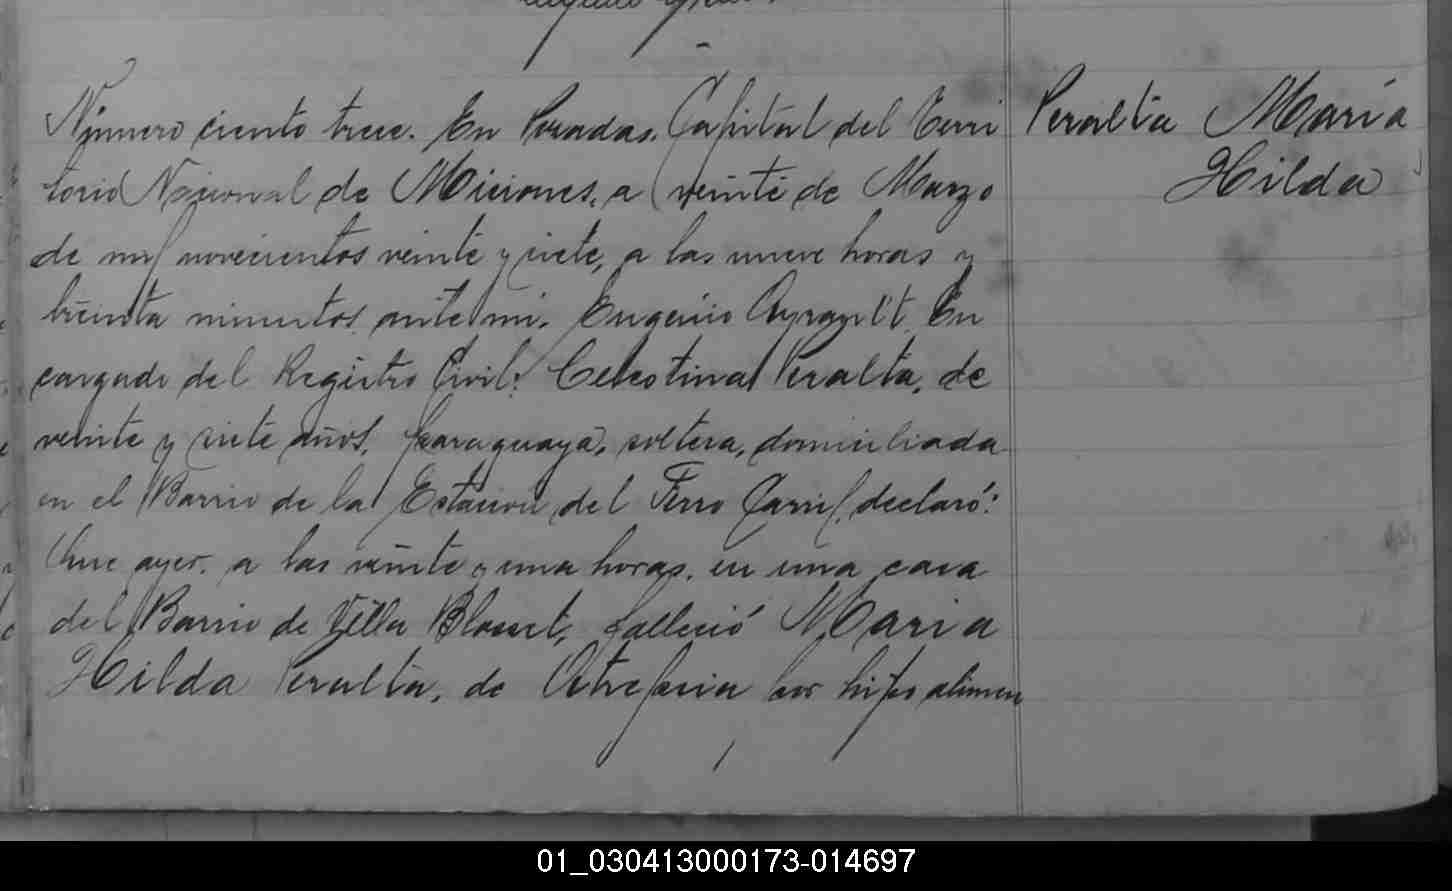 Número ciento trece. En Posadas, Capital del Terri
torio Nacional de Miciones, a veinte de Marzo
de mil novecientos veinte y siete, a las nueve horas y
treinta minutos ante mi, Eugenio Ayrault En
cargado del Registro Civil: Celestina Peralta, de
veinte y siete años, paraguaya, soltera, domiciliada
en el Barrio de la Estacion del Ferro Carril, declaró:
Que ayer, a las veinte y una horas, en una casa
del Barrio de Villa Blosset, falleció Maria
Hilda Peralta, de Atrepcia por hipo alimen
Peralta María
Hilda
01_030413000173-014697